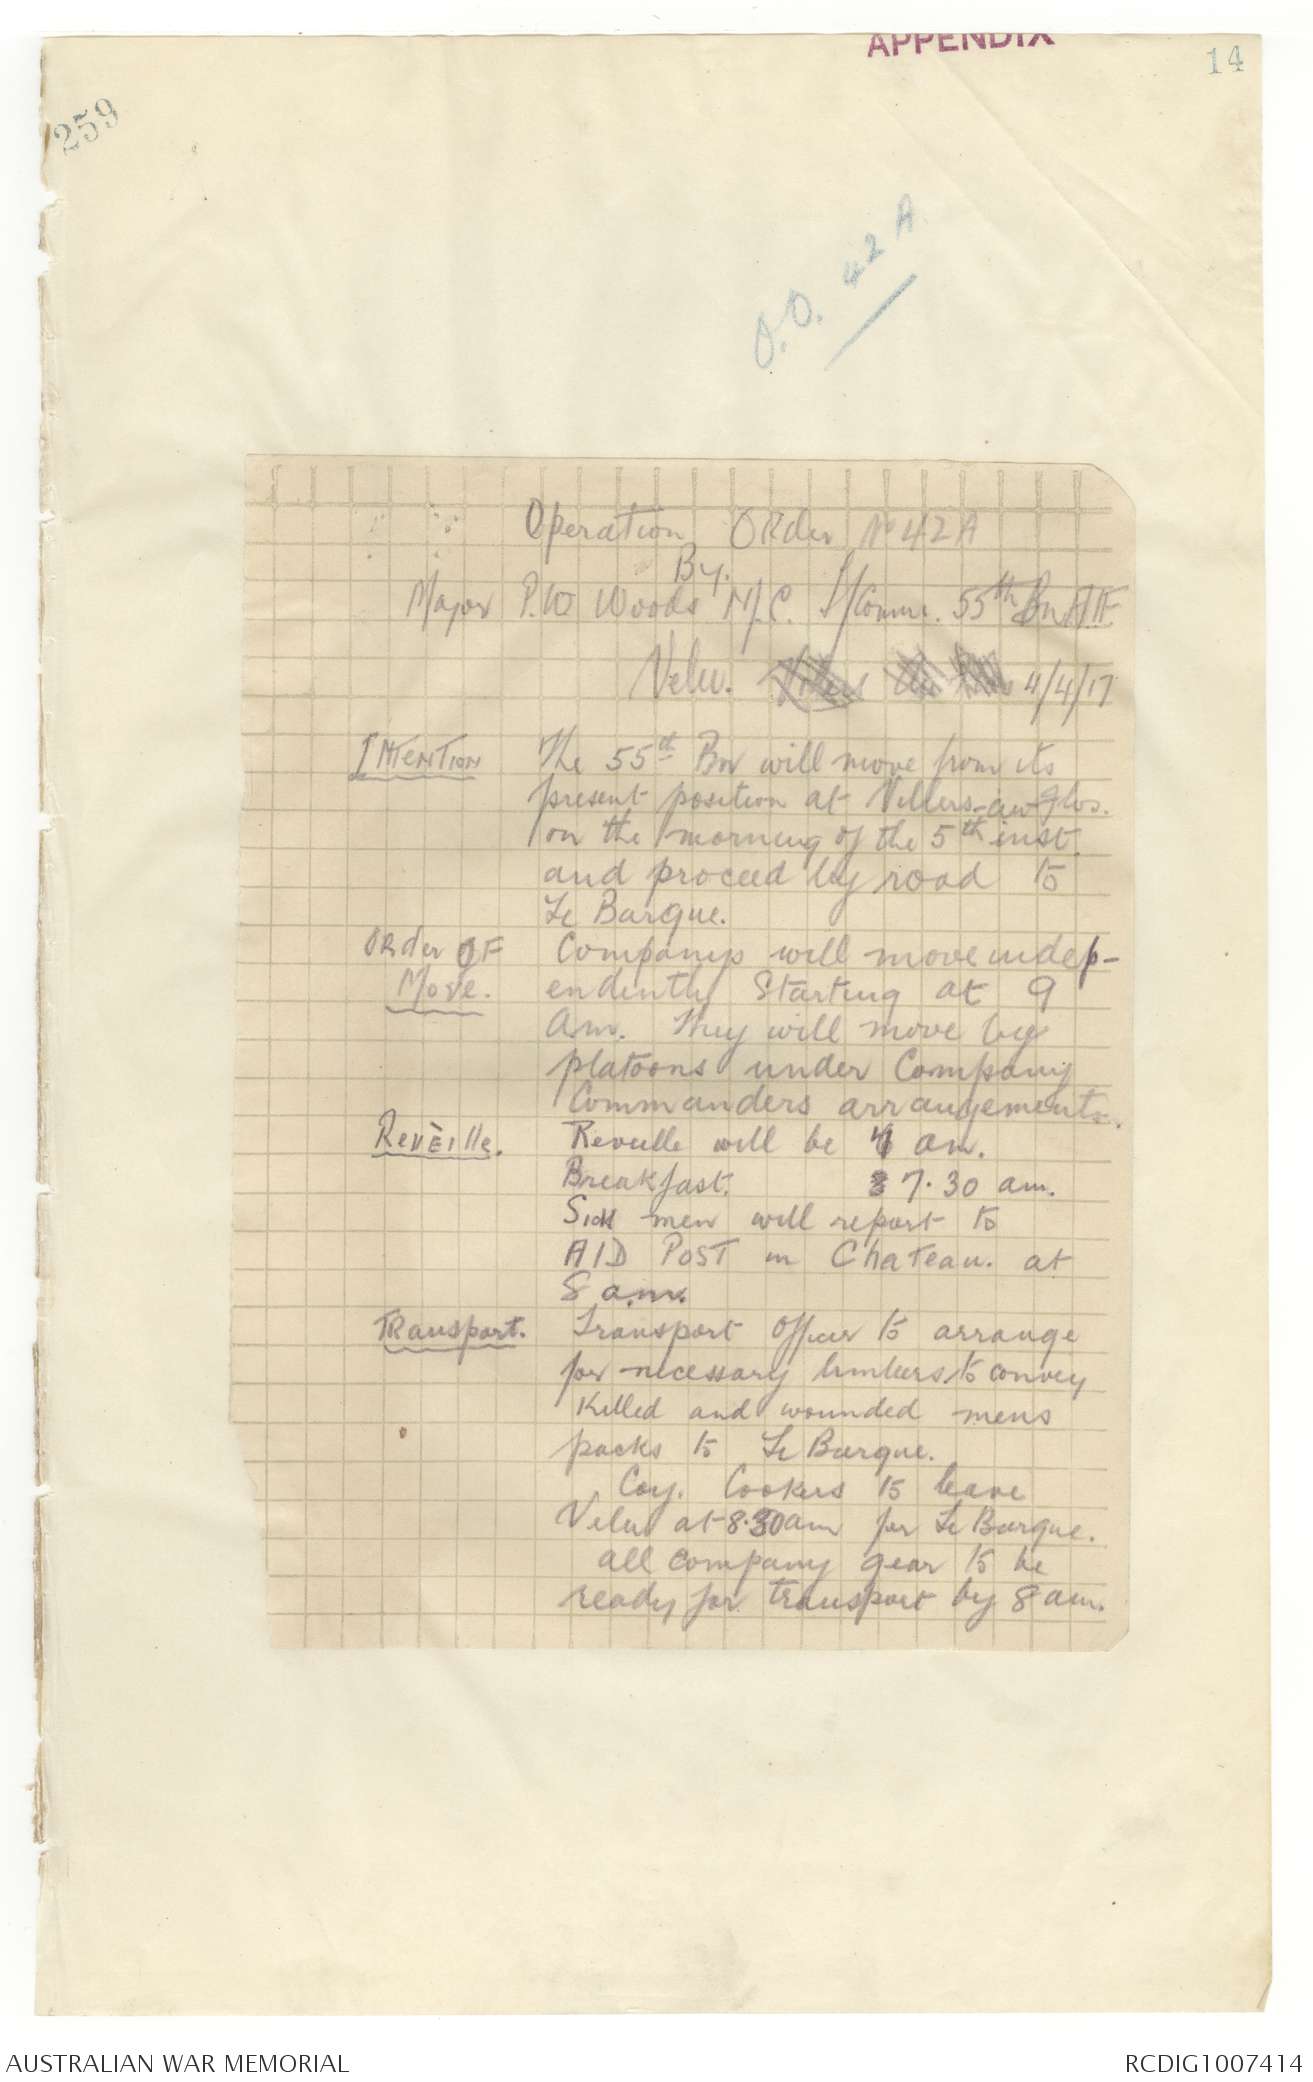 APPENDIX
14
259
O.O. 42A
Operation ORder No 42A
By.
Major P.W Woods M.C. T/Comm. 55th Bn AIF
Velu. 4/4/17
INTENTION The 55th Bn will move from its
present position at Villers-au-Flos.
on the morning of the 5th inst.
and proceed by road to
Le Barque.
ORder OF Companys will move indep-
Move. endently Starting at 9
Am. They will move by
platoons under Company
Commanders arrangements.
Reveille. Reveille will be 4 am.
Breakfast. 7.30 am.
Sick men will report to
AID POST in Chateau. at
8 a.m.
TRansport. Transport Officer to arrange
for necessary limbers to convey
Killed and wounded mens
packs to Le Barque.
Coy. Cookers to leave
Velu at 8.30am for Le Barque.
all company gear to be
ready for transport by 8 am.
AUSTRALIAN WAR MEMORIAL
RCDIG1007414